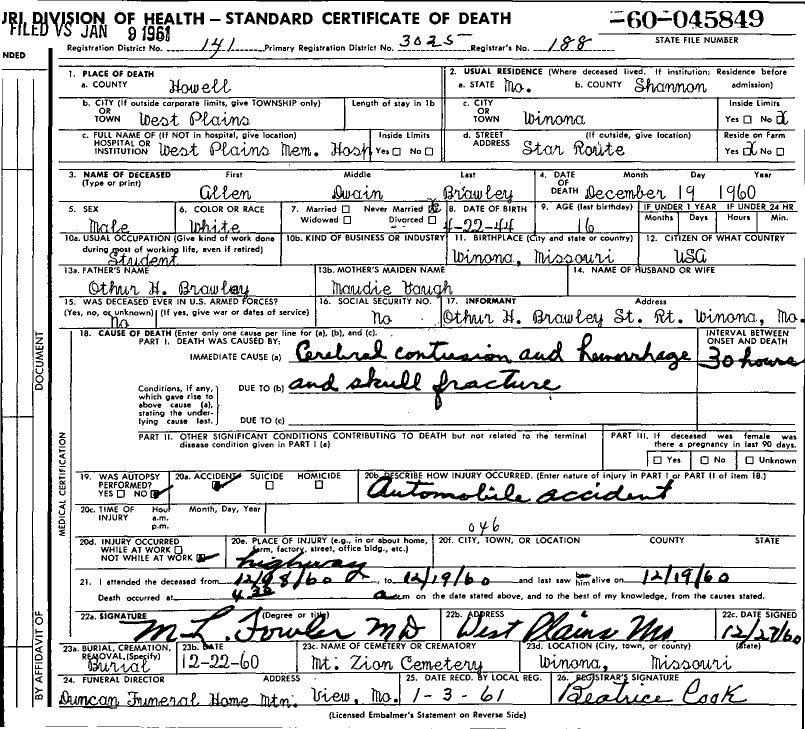 URI DIVISION OF HEALTH — STANDARD CERTIFICATE OF DEATH
-60-045849
FILED VS JAN 9 1961
STATE FILE NUMBER
Registration District No. 141 Primary Registration District No. 3025 Registrar's No. 188
NDED
1. PLACE OF DEATH
a. COUNTY Howell
2. USUAL RESIDENCE (Where deceased lived. If institution: Residence before admission)
a. STATE Mo. b. COUNTY Shannon
b. CITY (If outside corporate limits, give TOWNSHIP only) OR TOWN West Plains
Length of stay in 1b
c. CITY OR TOWN Winona
Inside Limits Yes □ No X
c. FULL NAME OF (If NOT in hospital, give location) HOSPITAL OR INSTITUTION West Plains Mem. Hosp
Inside Limits Yes □ No □
d. STREET ADDRESS (If outside, give location) Star Route
Reside on Farm Yes X No □
3. NAME OF DECEASED (Type or print) First Middle Last
Allen Dwain Brawley
4. DATE OF DEATH Month Day Year
December 19 1960
5. SEX Male
6. COLOR OR RACE White
7. Married □ Never Married X Widowed □ Divorced □
8. DATE OF BIRTH 4-22-44
9. AGE (last birthday) 16
IF UNDER 1 YEAR Months Days
IF UNDER 24 HR Hours Min.
10a. USUAL OCCUPATION (Give kind of work done during most of working life, even if retired) Student
10b. KIND OF BUSINESS OR INDUSTRY
11. BIRTHPLACE (City and state or country) Winona, Missouri
12. CITIZEN OF WHAT COUNTRY USA
13a. FATHER'S NAME Othur H. Brawley
13b. MOTHER'S MAIDEN NAME Maudie Vaugh
14. NAME OF HUSBAND OR WIFE
15. WAS DECEASED EVER IN U.S. ARMED FORCES? (Yes, no, or unknown) (If yes, give war or dates of service) No
16. SOCIAL SECURITY NO. No
17. INFORMANT Address
Othur H. Brawley St. Rt. Winona, Mo.
18. CAUSE OF DEATH (Enter only one cause per line for (a), (b), and (c).
PART I. DEATH WAS CAUSED BY:
INTERVAL BETWEEN ONSET AND DEATH
IMMEDIATE CAUSE (a) Cerebral contusion and hemorrhage 30 hours
Conditions, if any, which gave rise to above cause (a), stating the underlying cause last.
DUE TO (b) and skull fracture
DUE TO (c)
PART II. OTHER SIGNIFICANT CONDITIONS CONTRIBUTING TO DEATH but not related to the terminal disease condition given in PART I (a)
PART III. If deceased was female was there a pregnancy in last 90 days.
□ Yes □ No □ Unknown
19. WAS AUTOPSY PERFORMED? YES □ NO
20a. ACCIDENT SUICIDE HOMICIDE
20b. DESCRIBE HOW INJURY OCCURRED. (Enter nature of injury in PART I or PART II of item 18.)
Automobile accident
20c. TIME OF INJURY Hour a.m. p.m. Month, Day, Year
046
20d. INJURY OCCURRED WHILE AT WORK □ NOT WHILE AT WORK
20e. PLACE OF INJURY (e.g., in or about home, farm, factory, street, office bldg., etc.) highway
20f. CITY, TOWN, OR LOCATION COUNTY STATE
21. I attended the deceased from 12/18/60, to 12/19/60 and last saw him alive on 12/19/60
Death occurred at 4:30 a m on the date stated above, and to the best of my knowledge, from the causes stated.
22a. SIGNATURE (Degree or title) M L. Fowler MD
22b. ADDRESS West Plains Mo
22c. DATE SIGNED 12/27/60
23a. BURIAL, CREMATION, REMOVAL (Specify) Burial
23b. DATE 12-22-60
23c. NAME OF CEMETERY OR CREMATORY Mt. Zion Cemetery
23d. LOCATION (City, town, or county) (State) Winona, Missouri
24. FUNERAL DIRECTOR ADDRESS
Duncan Funeral Home Mtn. View, Mo.
25. DATE RECD. BY LOCAL REG. 1-3-61
26. REGISTRAR'S SIGNATURE Beatrice Cook
(Licensed Embalmer's Statement on Reverse Side)
DOCUMENT
MEDICAL CERTIFICATION
BY AFFIDAVIT OF